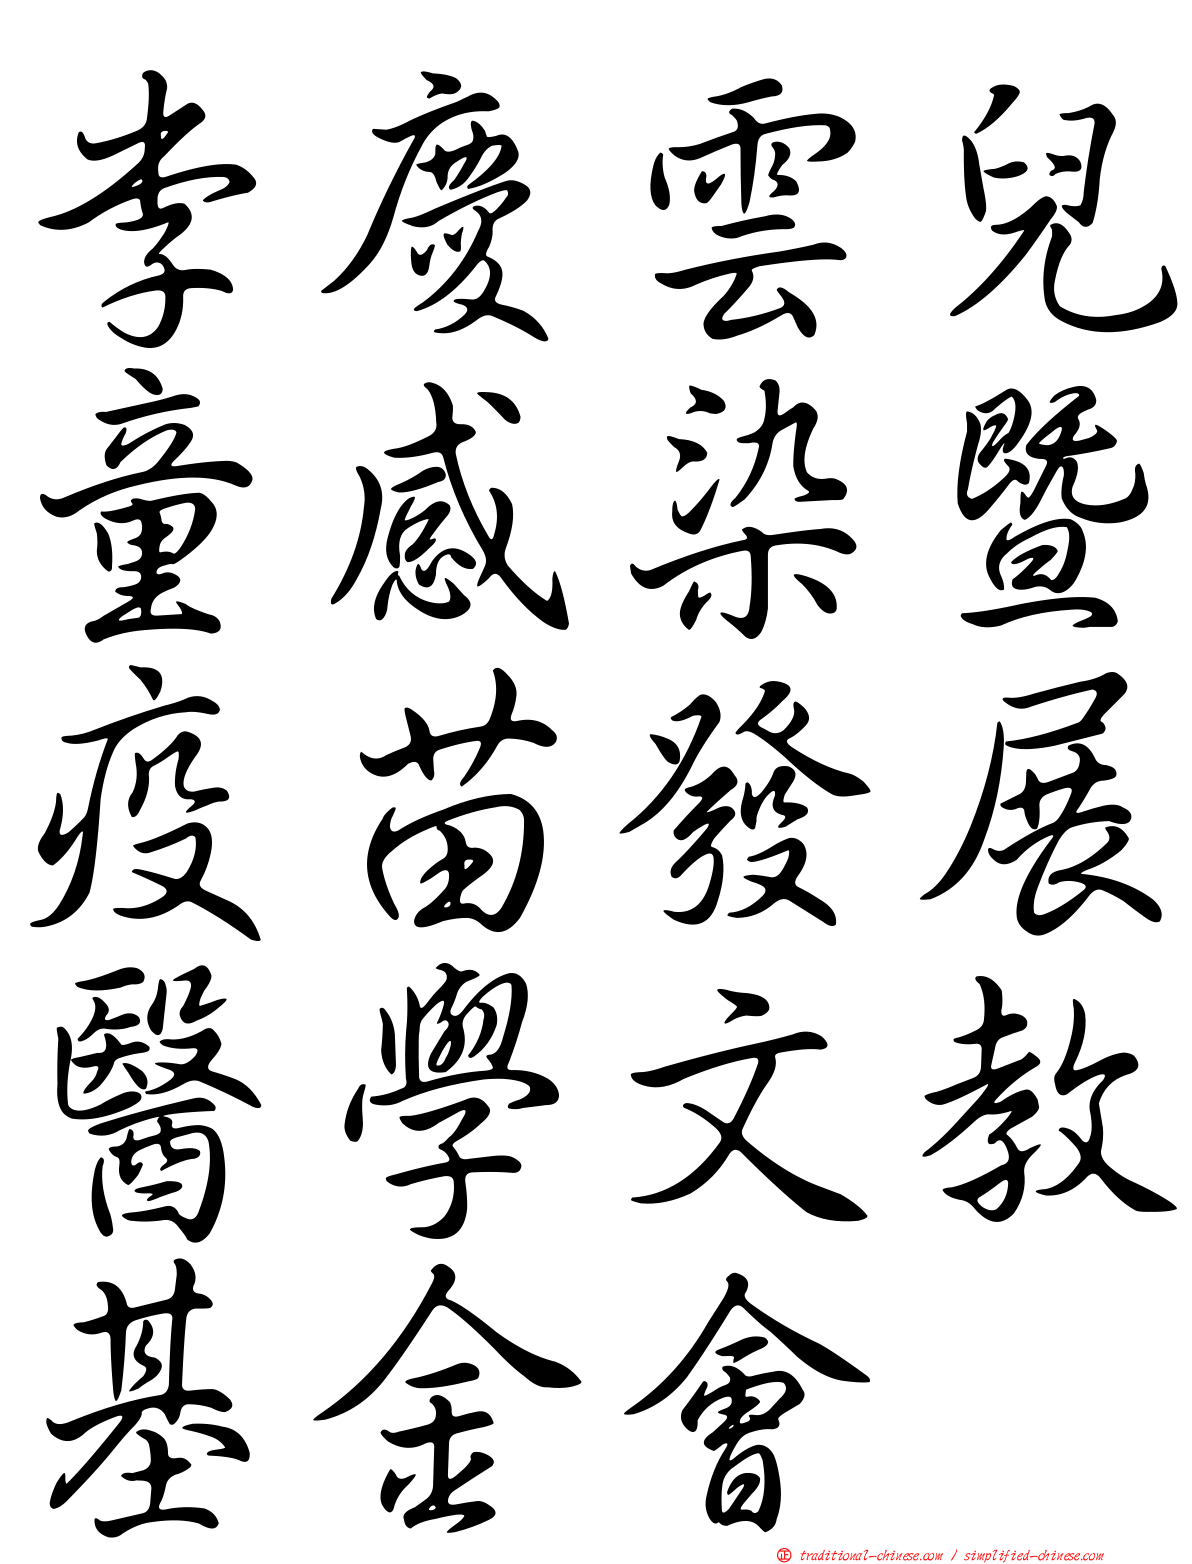 李慶雲兒
童感染暨
疫苗發展
醫學文教
基金會
正 traditional-chinese.com / simplified-chinese.com